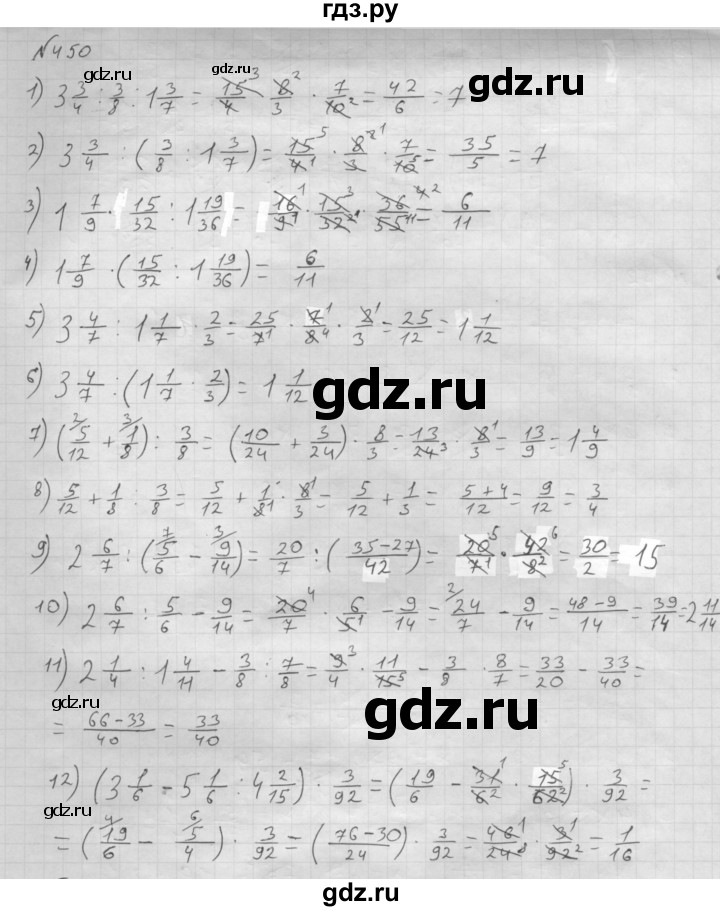 гдз.ру
№450
1) 3 3/4 : 3/8 : 1 3/7 = 15/4 · 8/3 · 7/10 = 42/6 = 7
2) 3 3/4 : (3/8 : 1 3/7) = 15/4 · 8/3 · 7/10 = 35/5 = 7
3) 1 7/9 · 15/32 : 1 19/36 = 16/9 · 15/32 · 36/55 = 6/11
4) 1 7/9 · (15/32 : 1 19/36) = 6/11
5) 3 4/7 : 1 1/7 · 2/3 = 25/7 · 7/8 · 8/3 = 25/12 = 1 1/12
6) 3 4/7 : (1 1/7 · 2/3) = 1 1/12
7) (5/12 + 1/8) : 3/8 = (10/24 + 3/24) · 8/3 = 13/24 · 8/3 = 13/9 = 1 4/9
8) 5/12 + 1/8 : 3/8 = 5/12 + 1/8 · 8/3 = 5/12 + 1/3 = 5+4/12 = 9/12 = 3/4
9) 2 6/7 : (5/6 - 9/14) = 20/7 : (35-27/42) = 20/7 · 42/8 = 30/2 = 15
10) 2 6/7 : 5/6 - 9/14 = 20/7 · 6/5 - 9/14 = 24/7 - 9/14 = 48-9/14 = 39/14 = 2 11/14
11) 2 1/4 : 1 4/11 - 3/8 : 7/8 = 9/4 · 11/15 - 3/8 · 8/7 = 33/20 - 33/40 =
= 66-33/40 = 33/40
12) (3 1/6 - 5 1/6 : 4 2/15) · 3/92 = (19/6 - 31/6 · 15/62) · 3/92 =
= (19/6 - 5/4) · 3/92 = (76-30/24) · 3/92 = 46/24 · 3/92 = 1/16
gdz.ru
gdz.ru
gdz.ru
gdz.ru
gdz.ru
gdz.ru
gdz.ru
gdz.ru
gdz.ru
gdz.ru
gdz.ru